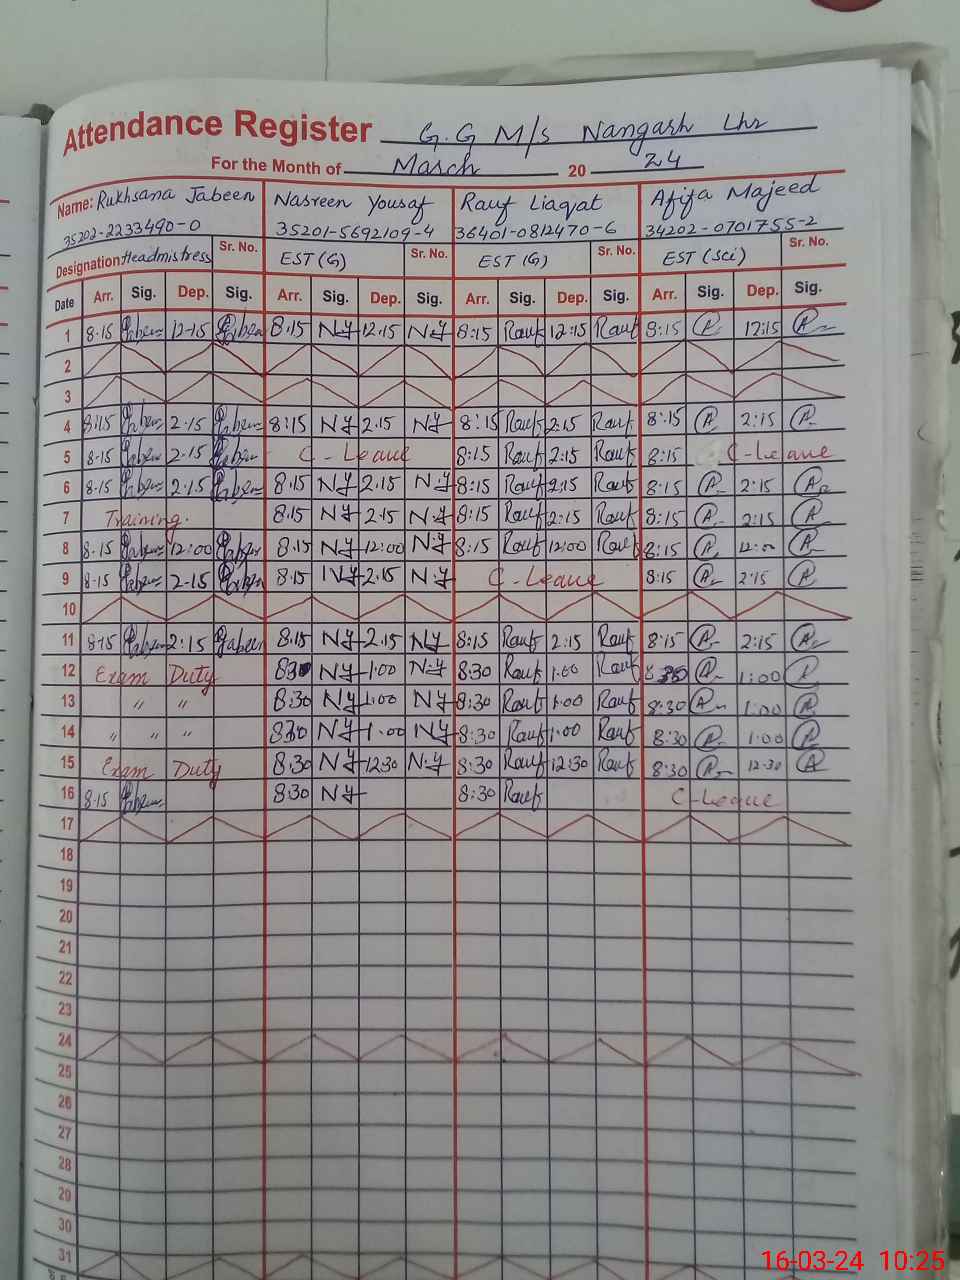 Attendance Register G.G M/s Nangarh Lhr
For the Month of March 20 24
Name: Rukhsana Jabeen Nasreen Yousaf Rauf Liaqat Afifa Majeed
35202-2233490-0 35201-5692109-4 36401-0812470-6 34202-0701755-2
Designation: Headmistress Sr. No. EST (G) Sr. No. EST (G) Sr. No. EST (Sci) Sr. No.
Date Arr. Sig. Dep. Sig. Arr. Sig. Dep. Sig. Arr. Sig. Dep. Sig. Arr. Sig. Dep. Sig.
1 8.15 Jabeen 12-15 Jabeen 8.15 N.Y 12.15 N.Y 8:15 Rauf 12:15 Rauf 8:15 A 12:15 A
2
3
4 8:15 Jabeen 2.15 Jabeen 8:15 N.Y 2.15 N.Y 8:15 Rauf 2:15 Rauf 8:15 A 2:15 A
5 8-15 Jabeen 2-15 Jabeen C - Leave 8:15 Rauf 2:15 Rauf 8:15 C-Leave
6 8-15 Jabeen 2.15 Jabeen 8.15 N.Y 2.15 N.Y 8:15 Rauf 2:15 Rauf 8:15 A 2:15 A
7 Training. 8.15 N.Y 2.15 N.Y 8:15 Rauf 2:15 Rauf 8:15 A 2:15 A
8 8.15 Jabeen 12:00 Jabeen 8.15 N.Y 12:00 N.Y 8:15 Rauf 12:00 Rauf 8:15 A 12:00 A
9 8-15 Jabeen 2-15 Jabeen 8.15 N.Y 2.15 N.Y C-Leave 8:15 A 2:15 A
10
11 8-15 Jabeen 2:15 Jabeen 8.15 N.Y 2.15 N.Y 8:15 Rauf 2:15 Rauf 8:15 A 2:15 A
12 Exam Duty 8:30 N.Y 1.00 N.Y 8:30 Rauf 1:00 Rauf 8:30 A 1:00 A
13 " " 8:30 N.Y 1.00 N.Y 8:30 Rauf 1:00 Rauf 8:30 A 1:00 A
14 " " " 8:30 N.Y 1.00 N.Y 8:30 Rauf 1:00 Rauf 8:30 A 1:00 A
15 Exam Duty 8:30 N.Y 12:30 N.Y 8:30 Rauf 12:30 Rauf 8:30 A 12:30 A
16 8-15 Jabeen 8:30 N.Y 8:30 Rauf C-Leave
17
18
19
20
21
22
23
24
25
26
27
28
29
30
31
16-03-24 10:25